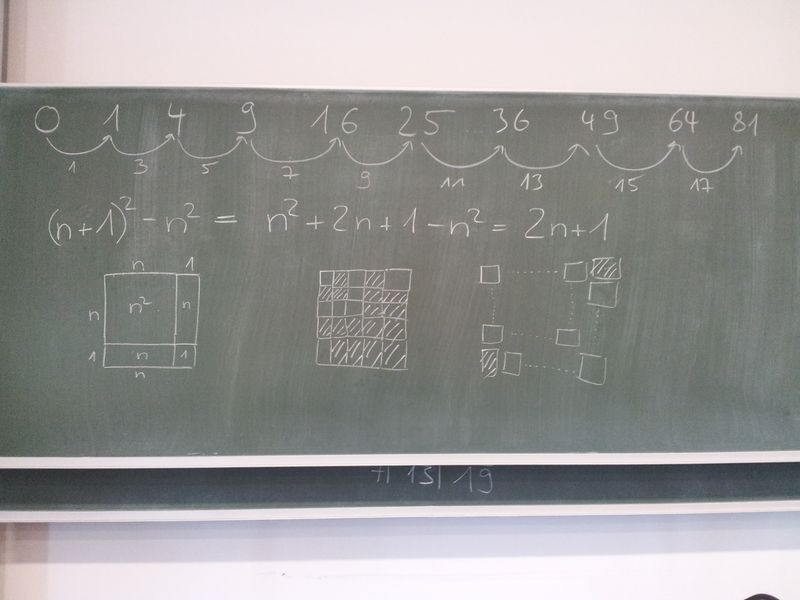 0 1 4 9 16 25 36 49 64 81
1 3 5 7 9 11 13 15 17
(n+1)² - n² = n² + 2n + 1 - n² = 2n + 1
n 1
n n² n
1 n 1
n
19